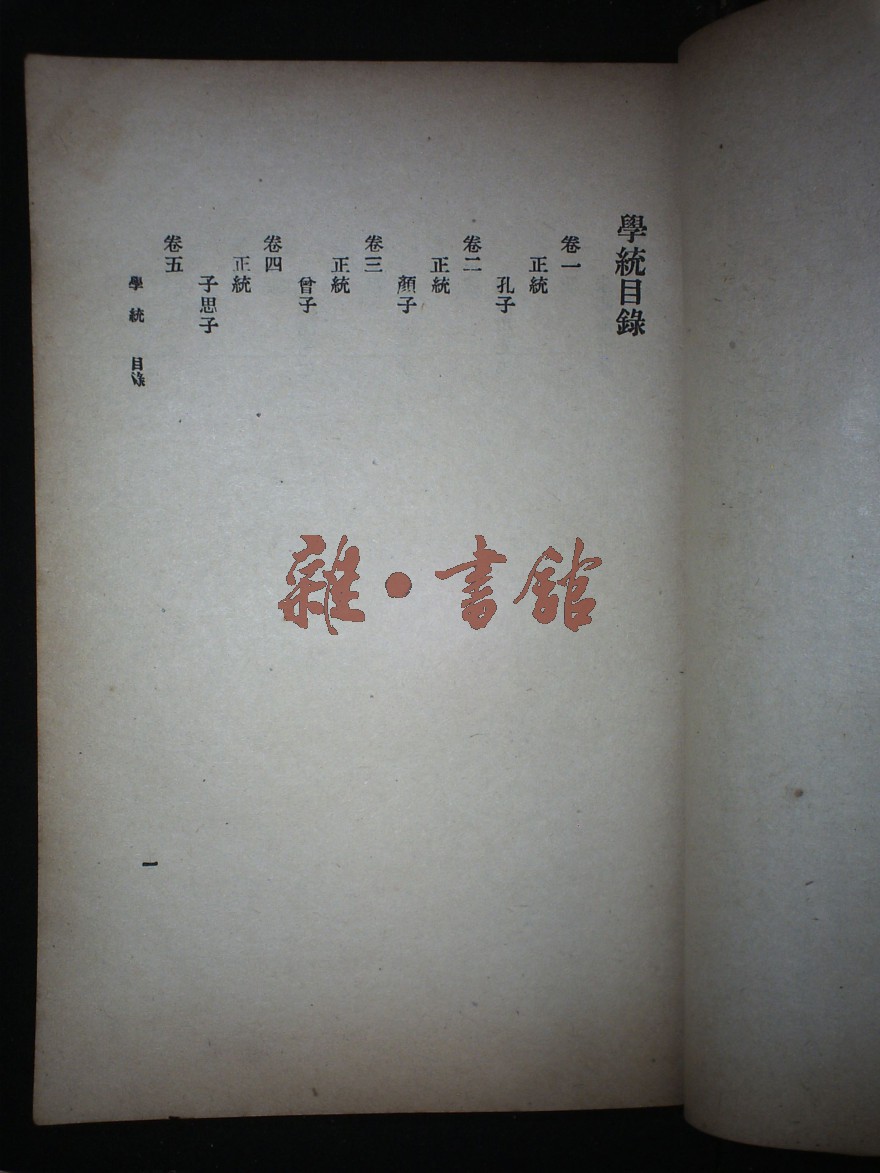 學統目錄
卷一
正統
孔子
卷二
正統
顏子
卷三
正統
曾子
卷四
正統
子思子
卷五
學統 目錄
一
雜·書館